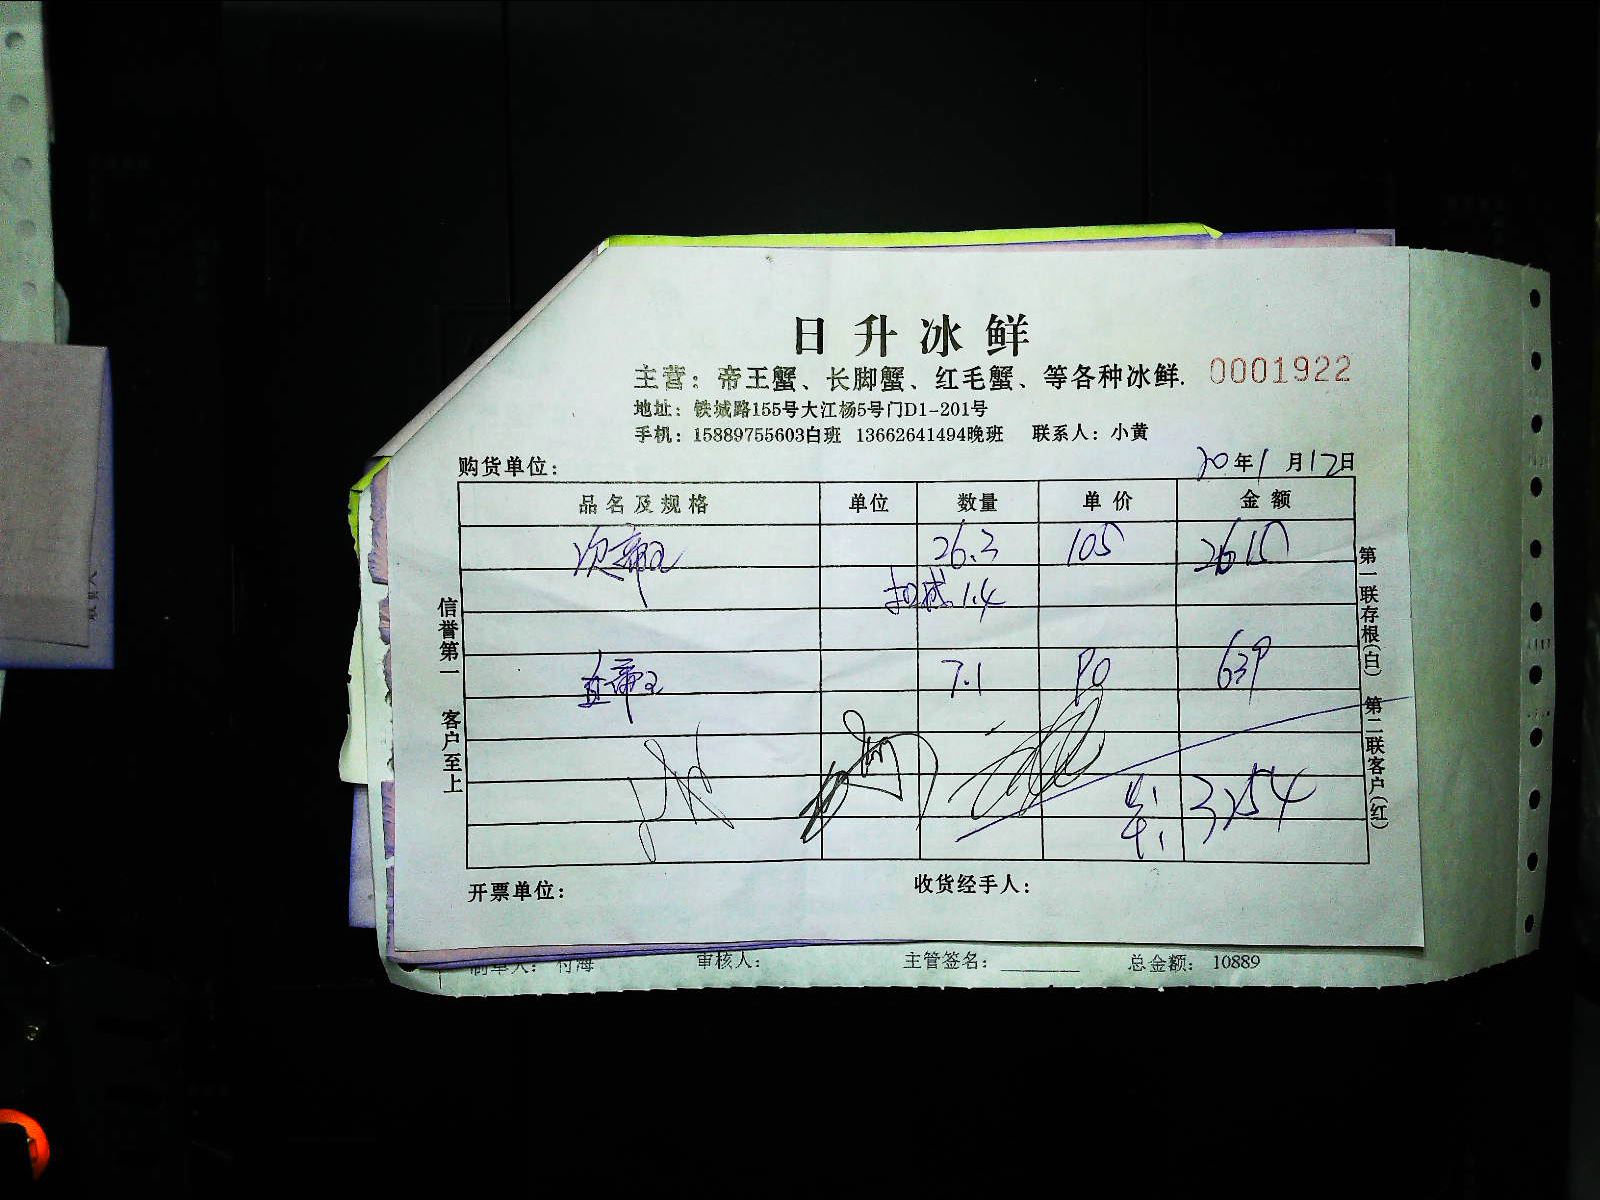 日升冰鲜
主营：帝王蟹、长脚蟹、红毛蟹、等各种冰鲜.
0001922
地址：铁城路155号大江杨5号门D1-201号
手机：15889755603白班 13662641494晚班 联系人：小黄
购货单位：
20年1月17日
品名及规格 单位 数量 单价 金额
次帝王 26.3 105 2615
扣冰 1.4
帝王 7.1 90 639
3254
信誉第一 客户至上
第一联存根(白) 第二联客户(红)
开票单位： 收货经手人：
制单人： 付海 审核人： 主管签名： 总金额： 10889